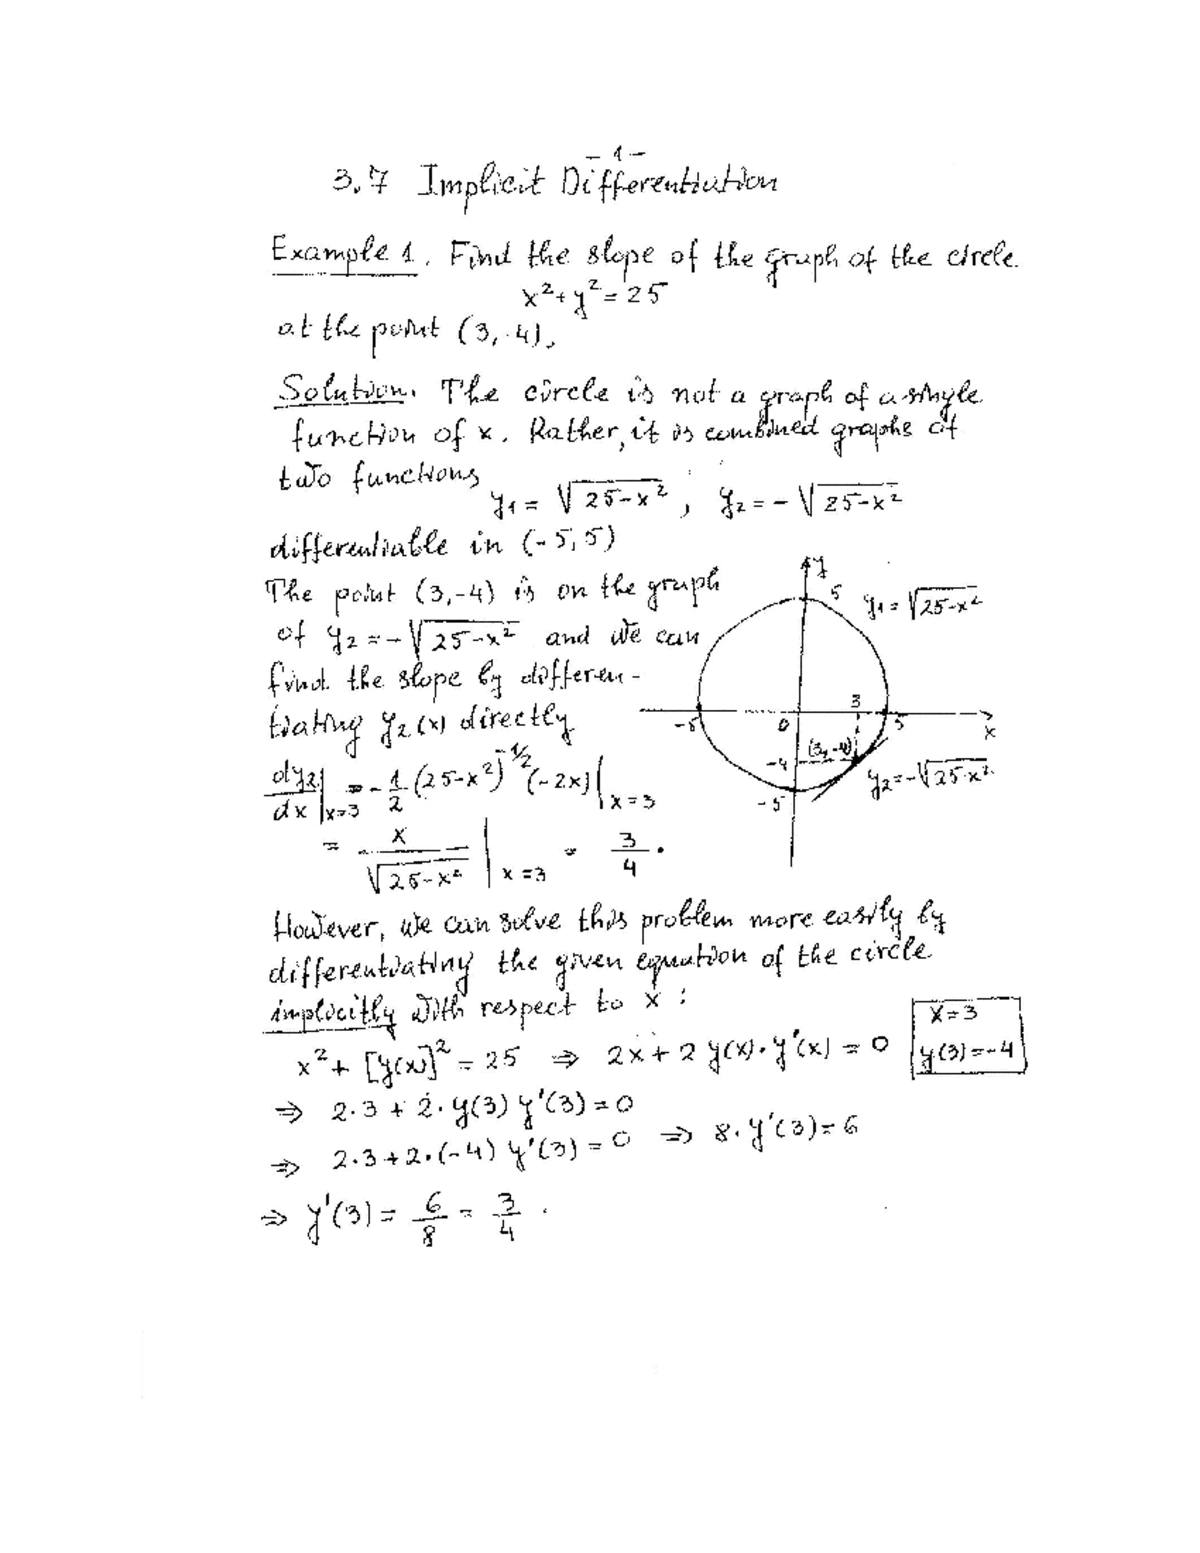 - 1 -
3.7 Implicit Differentiation
Example 1. Find the slope of the graph of the circle
x² + y² = 25
at the point (3, -4).
Solution. The circle is not a graph of a single
function of x. Rather, it is combined graphs of
two functions
y₁ = √25-x² , y₂ = - √25-x²
differentiable in (-5, 5)
The point (3,-4) is on the graph
of y₂ = -√25-x² and we can
find the slope by differen-
tiating y₂(x) directly
dy₂/dx |x=3 = - 1/2 (25-x²)^-1/2 (-2x) |x=3
= x/√25-x² |x=3 = 3/4 .
y
5
y₁ = √25-x²
3
-5
0
5
x
(3,-4)
-4
y₂=-√25-x²
-5
However, we can solve this problem more easily by
differentiating the given equation of the circle
implicitly with respect to x :
x² + [y(x)]² = 25 ⇒ 2x + 2 y(x)·y'(x) = 0
x=3
y(3)=-4
⇒ 2·3 + 2·y(3) y'(3) = 0
⇒ 2·3+2·(-4) y'(3) = 0 ⇒ 8·y'(3)= 6
⇒ y'(3) = 6/8 = 3/4 .